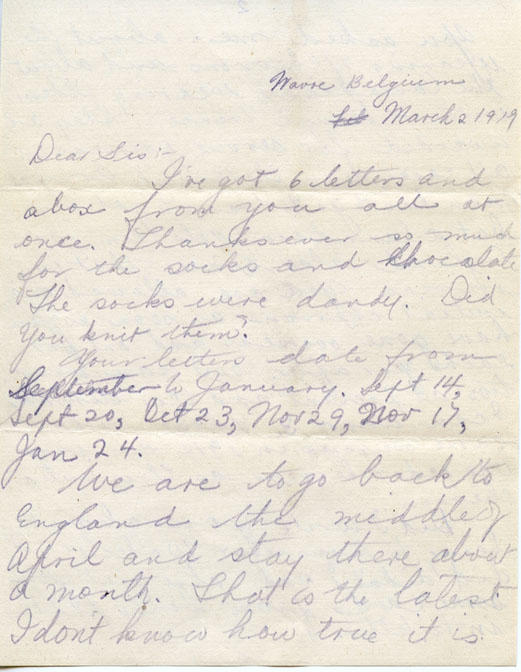 Wavre Belgium
Feb March 2 1919
Dear Sis:-
I've got 6 letters and
a box from you all at
once. Thanks ever so much
for the socks and chocolate
The socks were dandy. Did
you knit them?
Your letters date from
September to January. Sept 14,
Sept 20, Oct 23, Nov 29, Nov 17,
Jan 24.
We are to go back to
England the middle of
April and stay there about
a month. That is the latest
I dont know how true it is